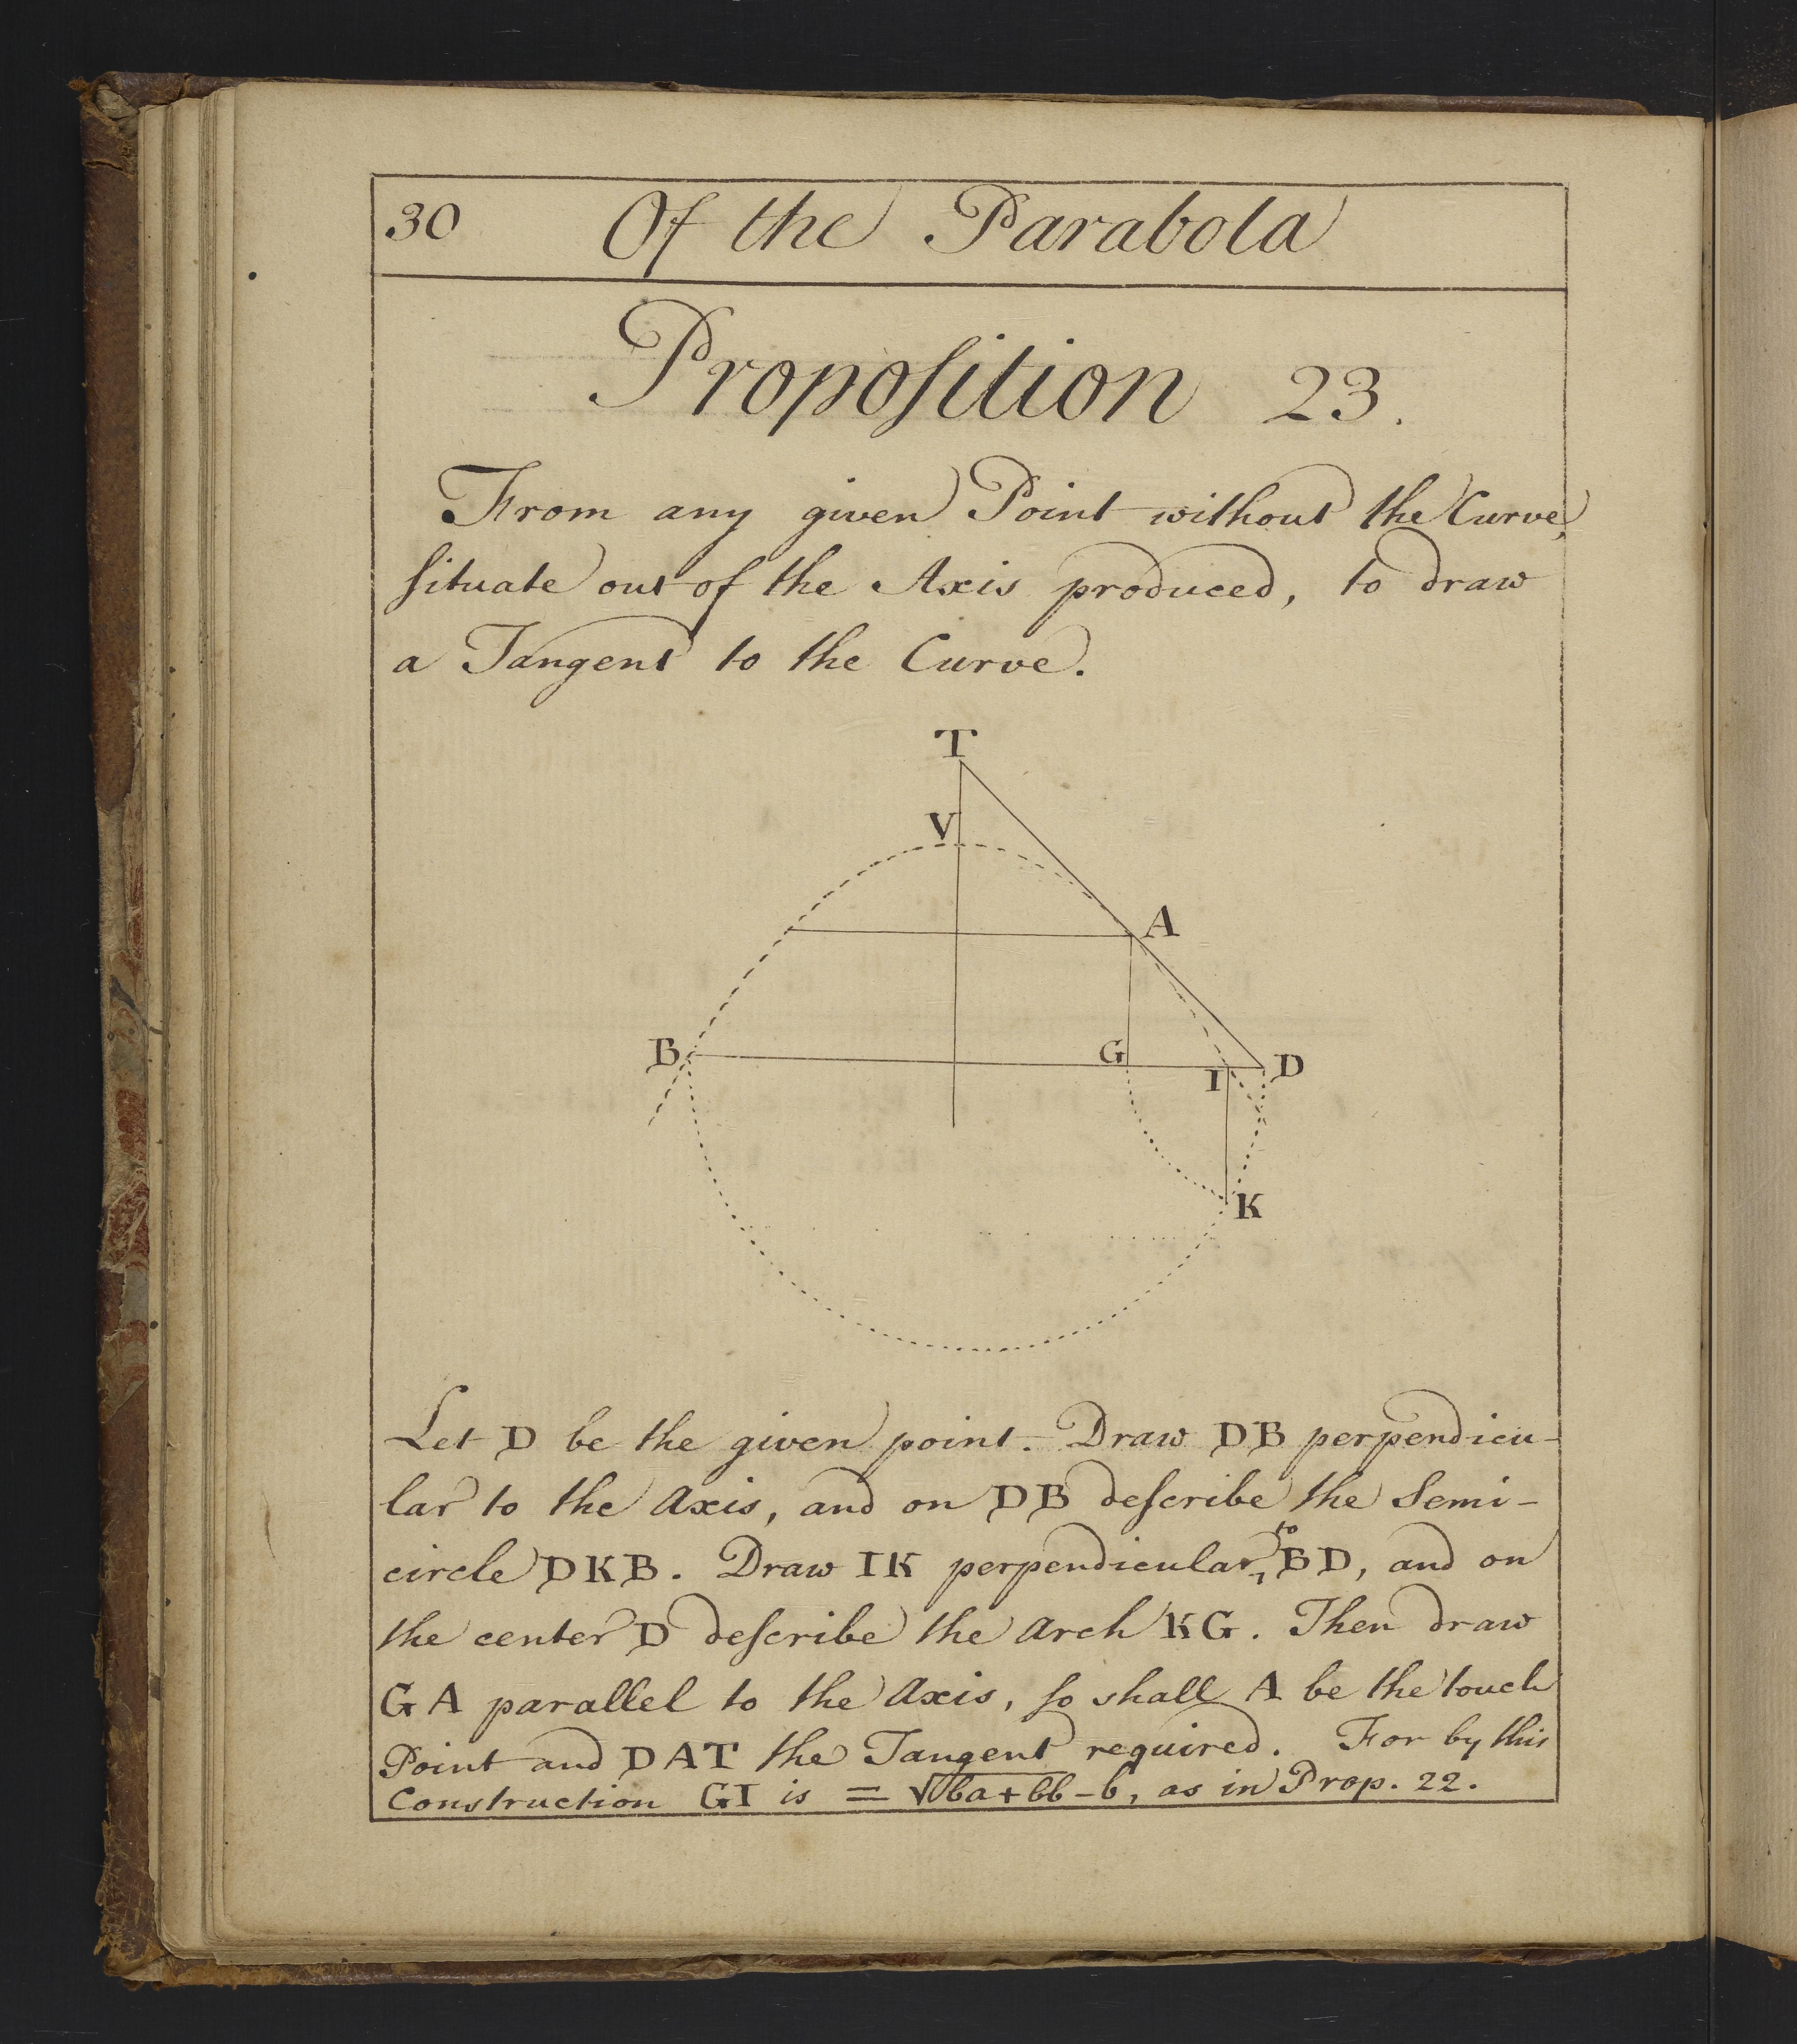 30 Of the Parabola
Propoſition 23.
From any given Point without the Curve,
ſituate out of the Axis produced, to draw
a Tangent to the Curve.
T
V
A
B
G
I
D
K
Let D be the given point. Draw DB perpendicu-
lar to the Axis, and on DB deſcribe the Semi-
circle DKB. Draw IK perpendicular to BD, and on
the center D deſcribe the Arch KG. Then draw
GA parallel to the Axis, ſo shall A be the touch
Point and DAT the Tangent required. For by this
Construction GI is = √ba+bb - b, as in Prop. 22.